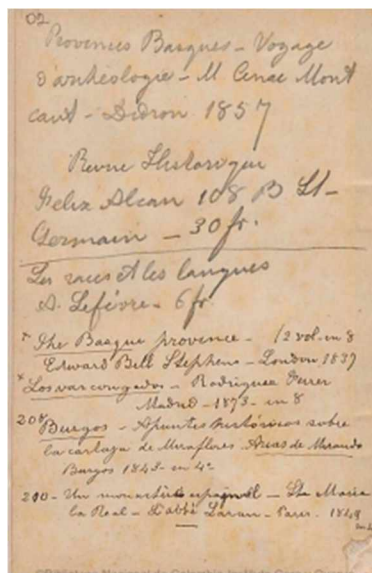 02
Provences Basques - Voyage
d'archéologie - M Cenac Mont
caut - Didron 1857
Revue Historique
Felix Alcan 108 B St-
Germain - 30 fr.
Les races et les langues
A. Lefévre - 6 fr
x The Basque provence - (2 vol - in 8
Edward Bell Stephens - London 1837
x Los vascongados - Rodriguez Ferrer
Madrid - 1873 - in 8
208 Burgos - Apuntes históricos sobre
la cartuja de Miraflores Arias de Miranda
Burgos 1843 - en 4º
200 - Un monastère espagnol - Ste Maria
la Real - L'abbé Laran - Paris. 1848